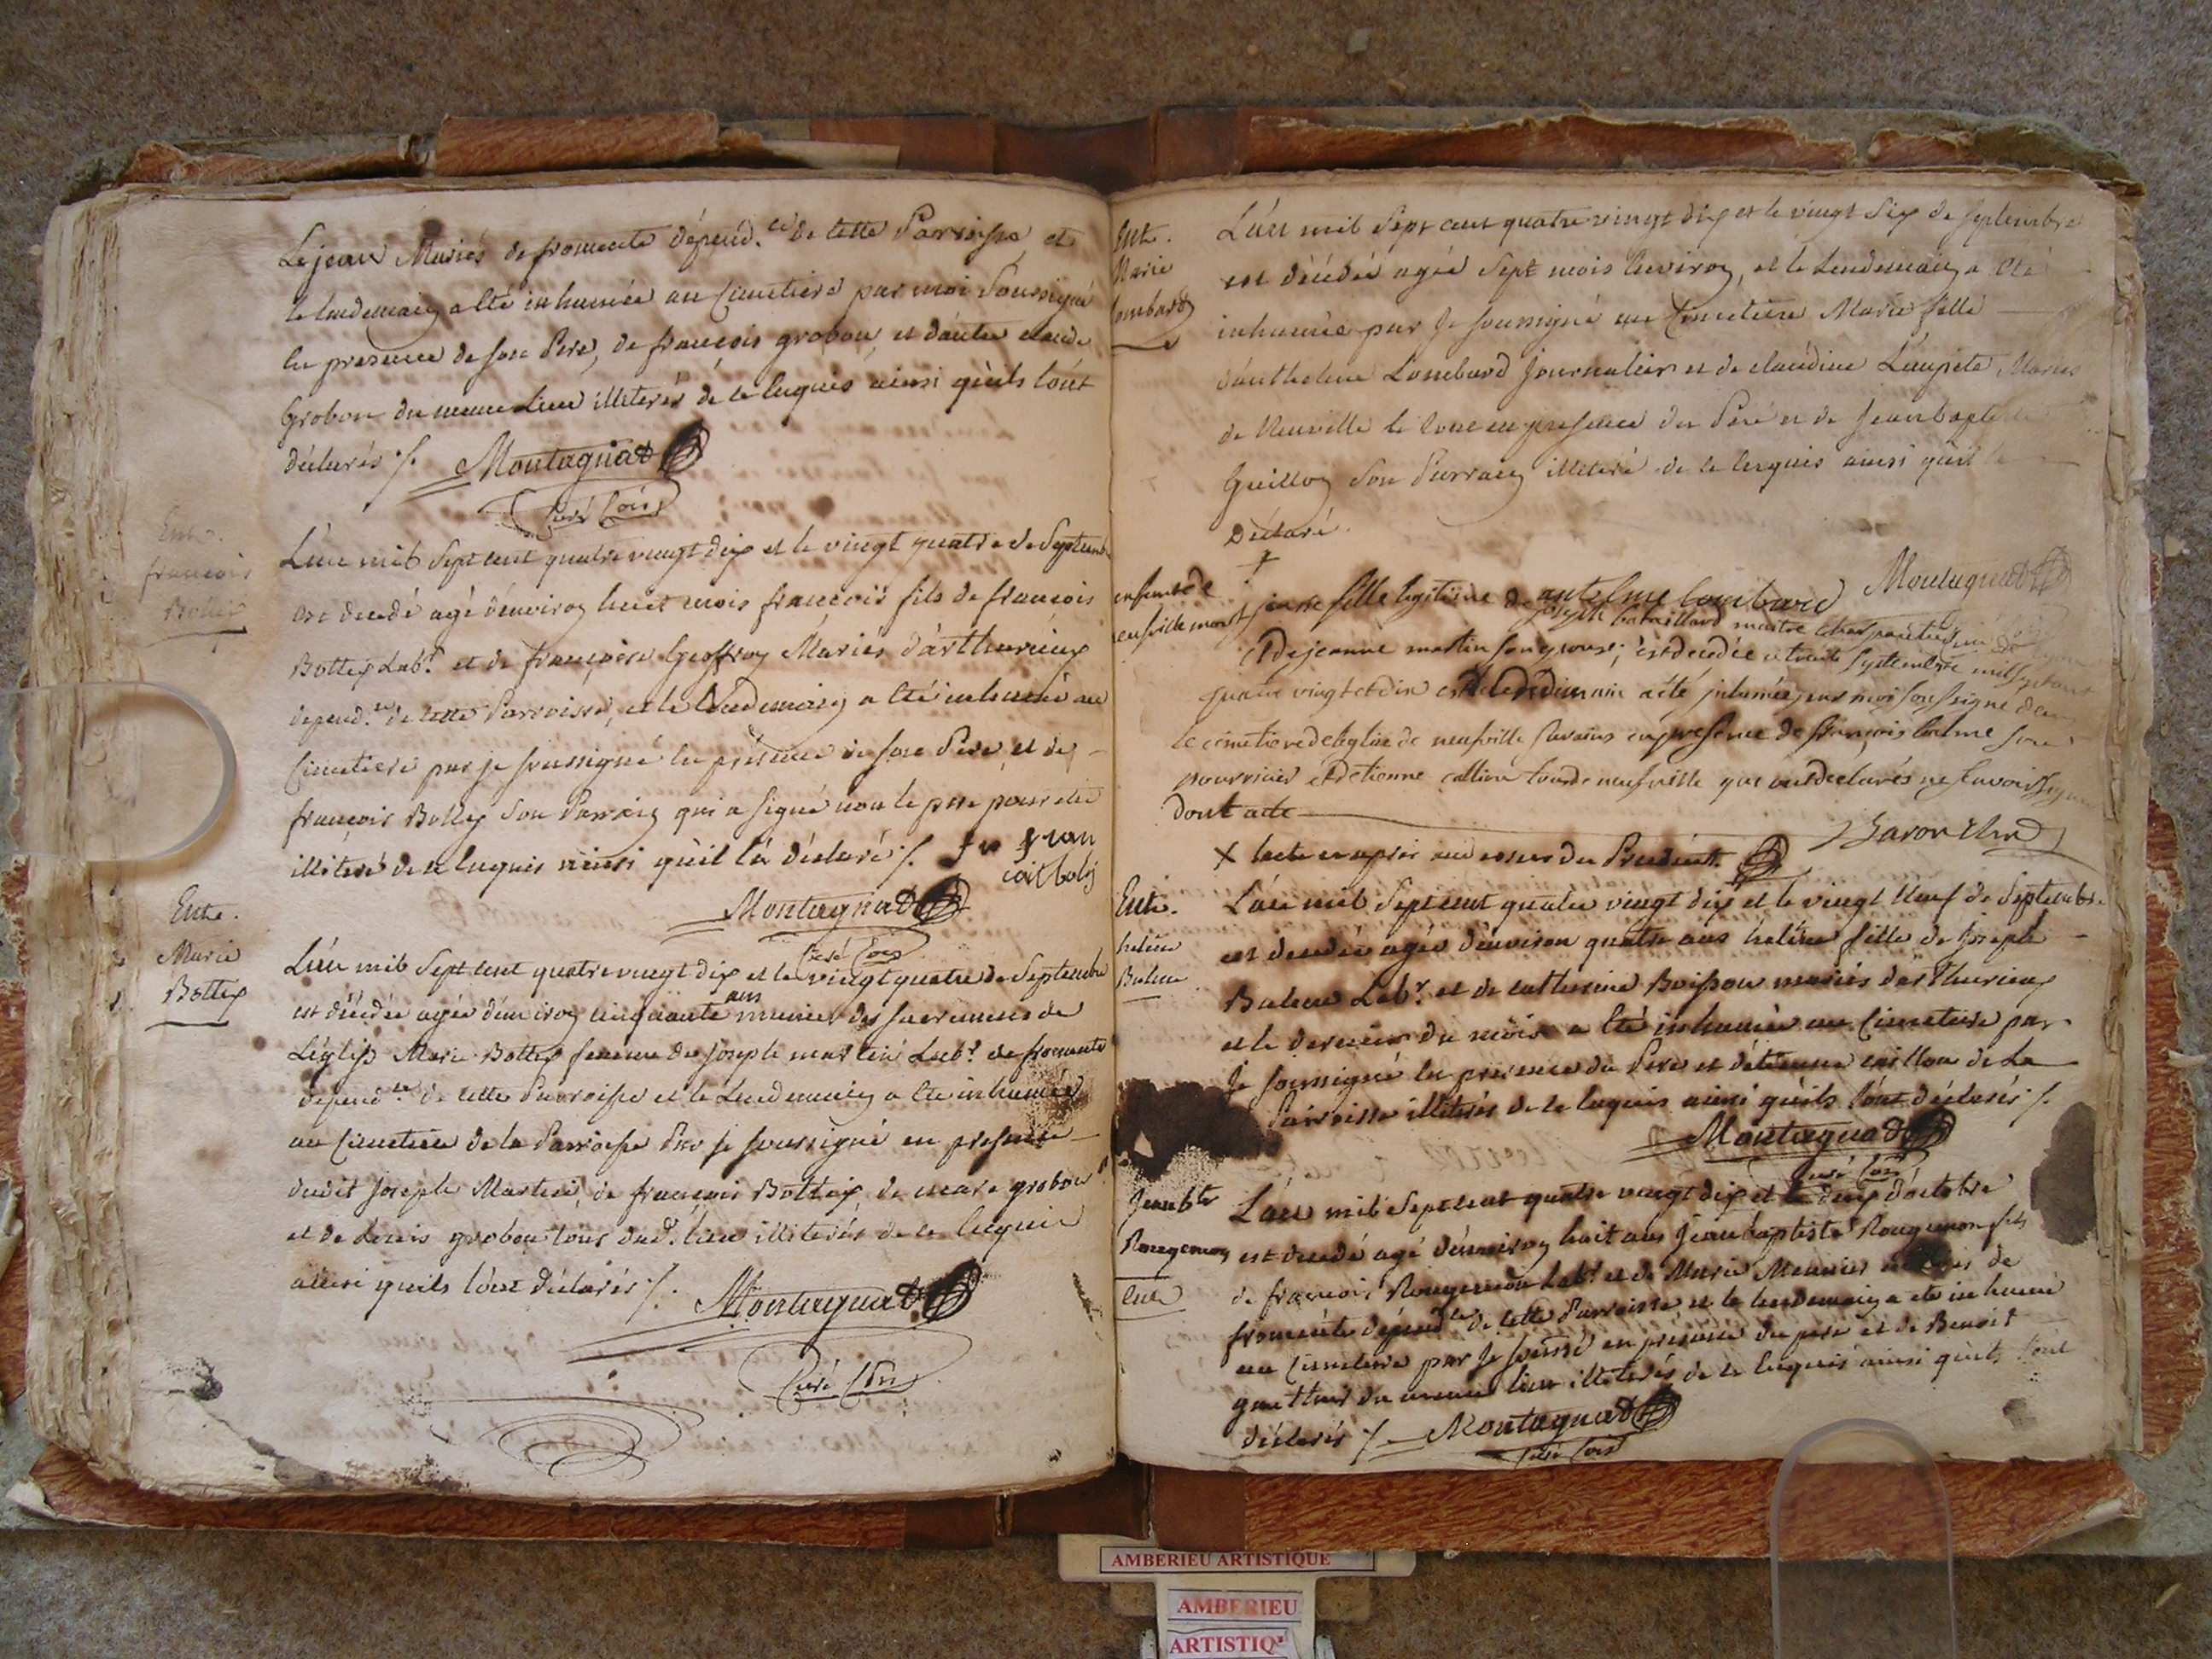 Lejeau Mariés de fromente dépend.ce de cette Parroisse, et
le lendemain a été inhumée au Cimetiere par moi Soussigné
en presence de son Pere, de francois grobon, et d'autre claude
Grobon du meme Lieu illiterés de ce enquis ainsi qu'ils l'ont
déclarés ./. Montagnat
Curé Com
Ent.
francois
Bottex
L'an mil Sept cent quatre vingt dix et le vingt quatre de Septemb
est decedé agé d'environ huit mois francois fils de francois
Bottex Lab.r et de francoise Geoffroy Mariés d'arthurieux
depend.ce de cette Parroisse, et le Lendemain a été inhumé au
Cimetiere par je soussigné en présence de son Pere, et de
francois Bottex Son Parrain qui a signé non le pere pour etre
illiteré de ce enquis ainsi qu'il l'a déclaré ./.
Montagnat
Curé Com
Ent.
Marie
Bottex
L'an mil Sept cent quatre vingt dix et le vingt quatre de Septembre
est décédée agée d'environ cinquante ans munie des sacremens de
L'église Marie Bottex femme de Joseph martin Lab.r de fromente
depend.ce de cette Parroisse et le Lendemain a été inhumée
au Cimetiere de la Parroisse Par je soussigné en presence
dudit Joseph Martin, de francois Bottex, de marc grobon
et de Louis grobon tous dud. lieu illiterés de ce enquis
ainsi quils l'ont déclarés ./. Montagnat
Curé Com
Ent.
Marie
Lombard
L'an mil Sept cent quatre vingt dix et le vingt Six de Septembre
est décédée agée Sept mois environ, et le Lendemain a été
inhumée par Je soussigné au Cimetiere Marie fille
d'anthelme Lombard Journalier et de claudine Mariés
de Neuville le en presence du Pere et de Jean bapte
Guillon Son Parrain illiteré de ce enquis ainsi qu'il
Déclaré.
Montagnat
enfant de
neufville mort
jeanne fille legitime de joseph bataillard maitre charpentier
Et de jeanne martin son epouse, est decedée le trente Septembre mil sept cent
quatre vingt et dix et le lendemain a été inhumée par moi soussigné dans
le cimetiere de l'eglise de neufville en presence de françois balme son
nourricier et d'etienne tous de neufville qui ont declarés ne savoir signer
Dont acte
X
Ent.
helene
Balme
L'an mil Sept cent quatre vingt dix et le vingt Neuf de Septembre
est decedée agée d'environ quatre ans heléne fille de Joseph
Balme Lab.r et de catherine Buisson mariés d'arthurieux
et le dernier du mois a été inhumée au Cimetiere par
Je soussigné en presence du Pere et d'étienne caillon de La
Parroisse illiterés de ce enquis ainsi qu'ils l'ont déclarés ./.
Montagnat
Curé Com
Jean bte
Rougemon
Ent
L'an mil Sept cent quatre vingt dix et le deux d'octobre
est decedé agé d'environ huit ans Jean baptiste Rougemon fils
de francois Rougemon Lab.r et de Marie Meunier de
fromente dépend.ce de cette Parroisse et le lendemain a eté inhumé
au Cimetiere par Je soussé en présence du pere et de Benoit
du meme lieu illiterés de ce enquis ainsi qu'ils l'ont
déclarés ./. Montagnat
Curé Com
AMBERIEU ARTISTIQUE
AMBERIEU
ARTISTIQ